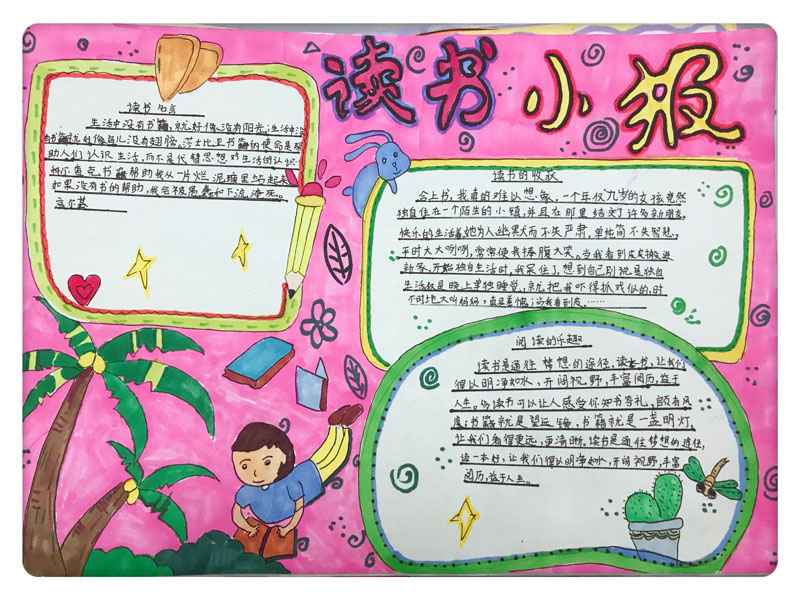 读书小报
读书名言
生活中没有书籍,就好像没有阳光;生活中没
有书籍就好像鸟儿没有翅膀。莎士比亚书籍的使命是帮
助人们认识生活,而不是代替思想对生活的认识。
书籍帮助我从一片烂泥塘里站起来
如果没有书的帮助,我会被愚蠢和下流淹死。
高尔基
读书的收获
合上书,我真的难以想象,一个年仅九岁的女孩竟然
独自住在一个陌生的小镇,并且在那里结交了许多新朋友,
快乐的生活着她为人幽默而不失严肃,单纯而不失智慧,
平时大大咧咧,常常使我捧腹大笑,当我看到皮皮搬进
新家,开始独自生活时,我呆住了,想到自己别说是独自
生活仅是晚上单独睡觉,就把我吓得抓戏似的,时
不时地大叫妈妈,真是羞愧;当我看到皮……
阅读的乐趣
读书是通往梦想的途径,读一本好书,让我们
得以明净如水,开阔视野,丰富阅历,益于
人生。读书可以让人感受你知书考礼,颇有风
度;书籍就是望远镜,书籍就是一盏明灯,
让我们看得更远,更清晰。读书是通往梦想的途径,
读一本好,让我们得以明净如水,开阔视野,丰富
阅历,益于人生。